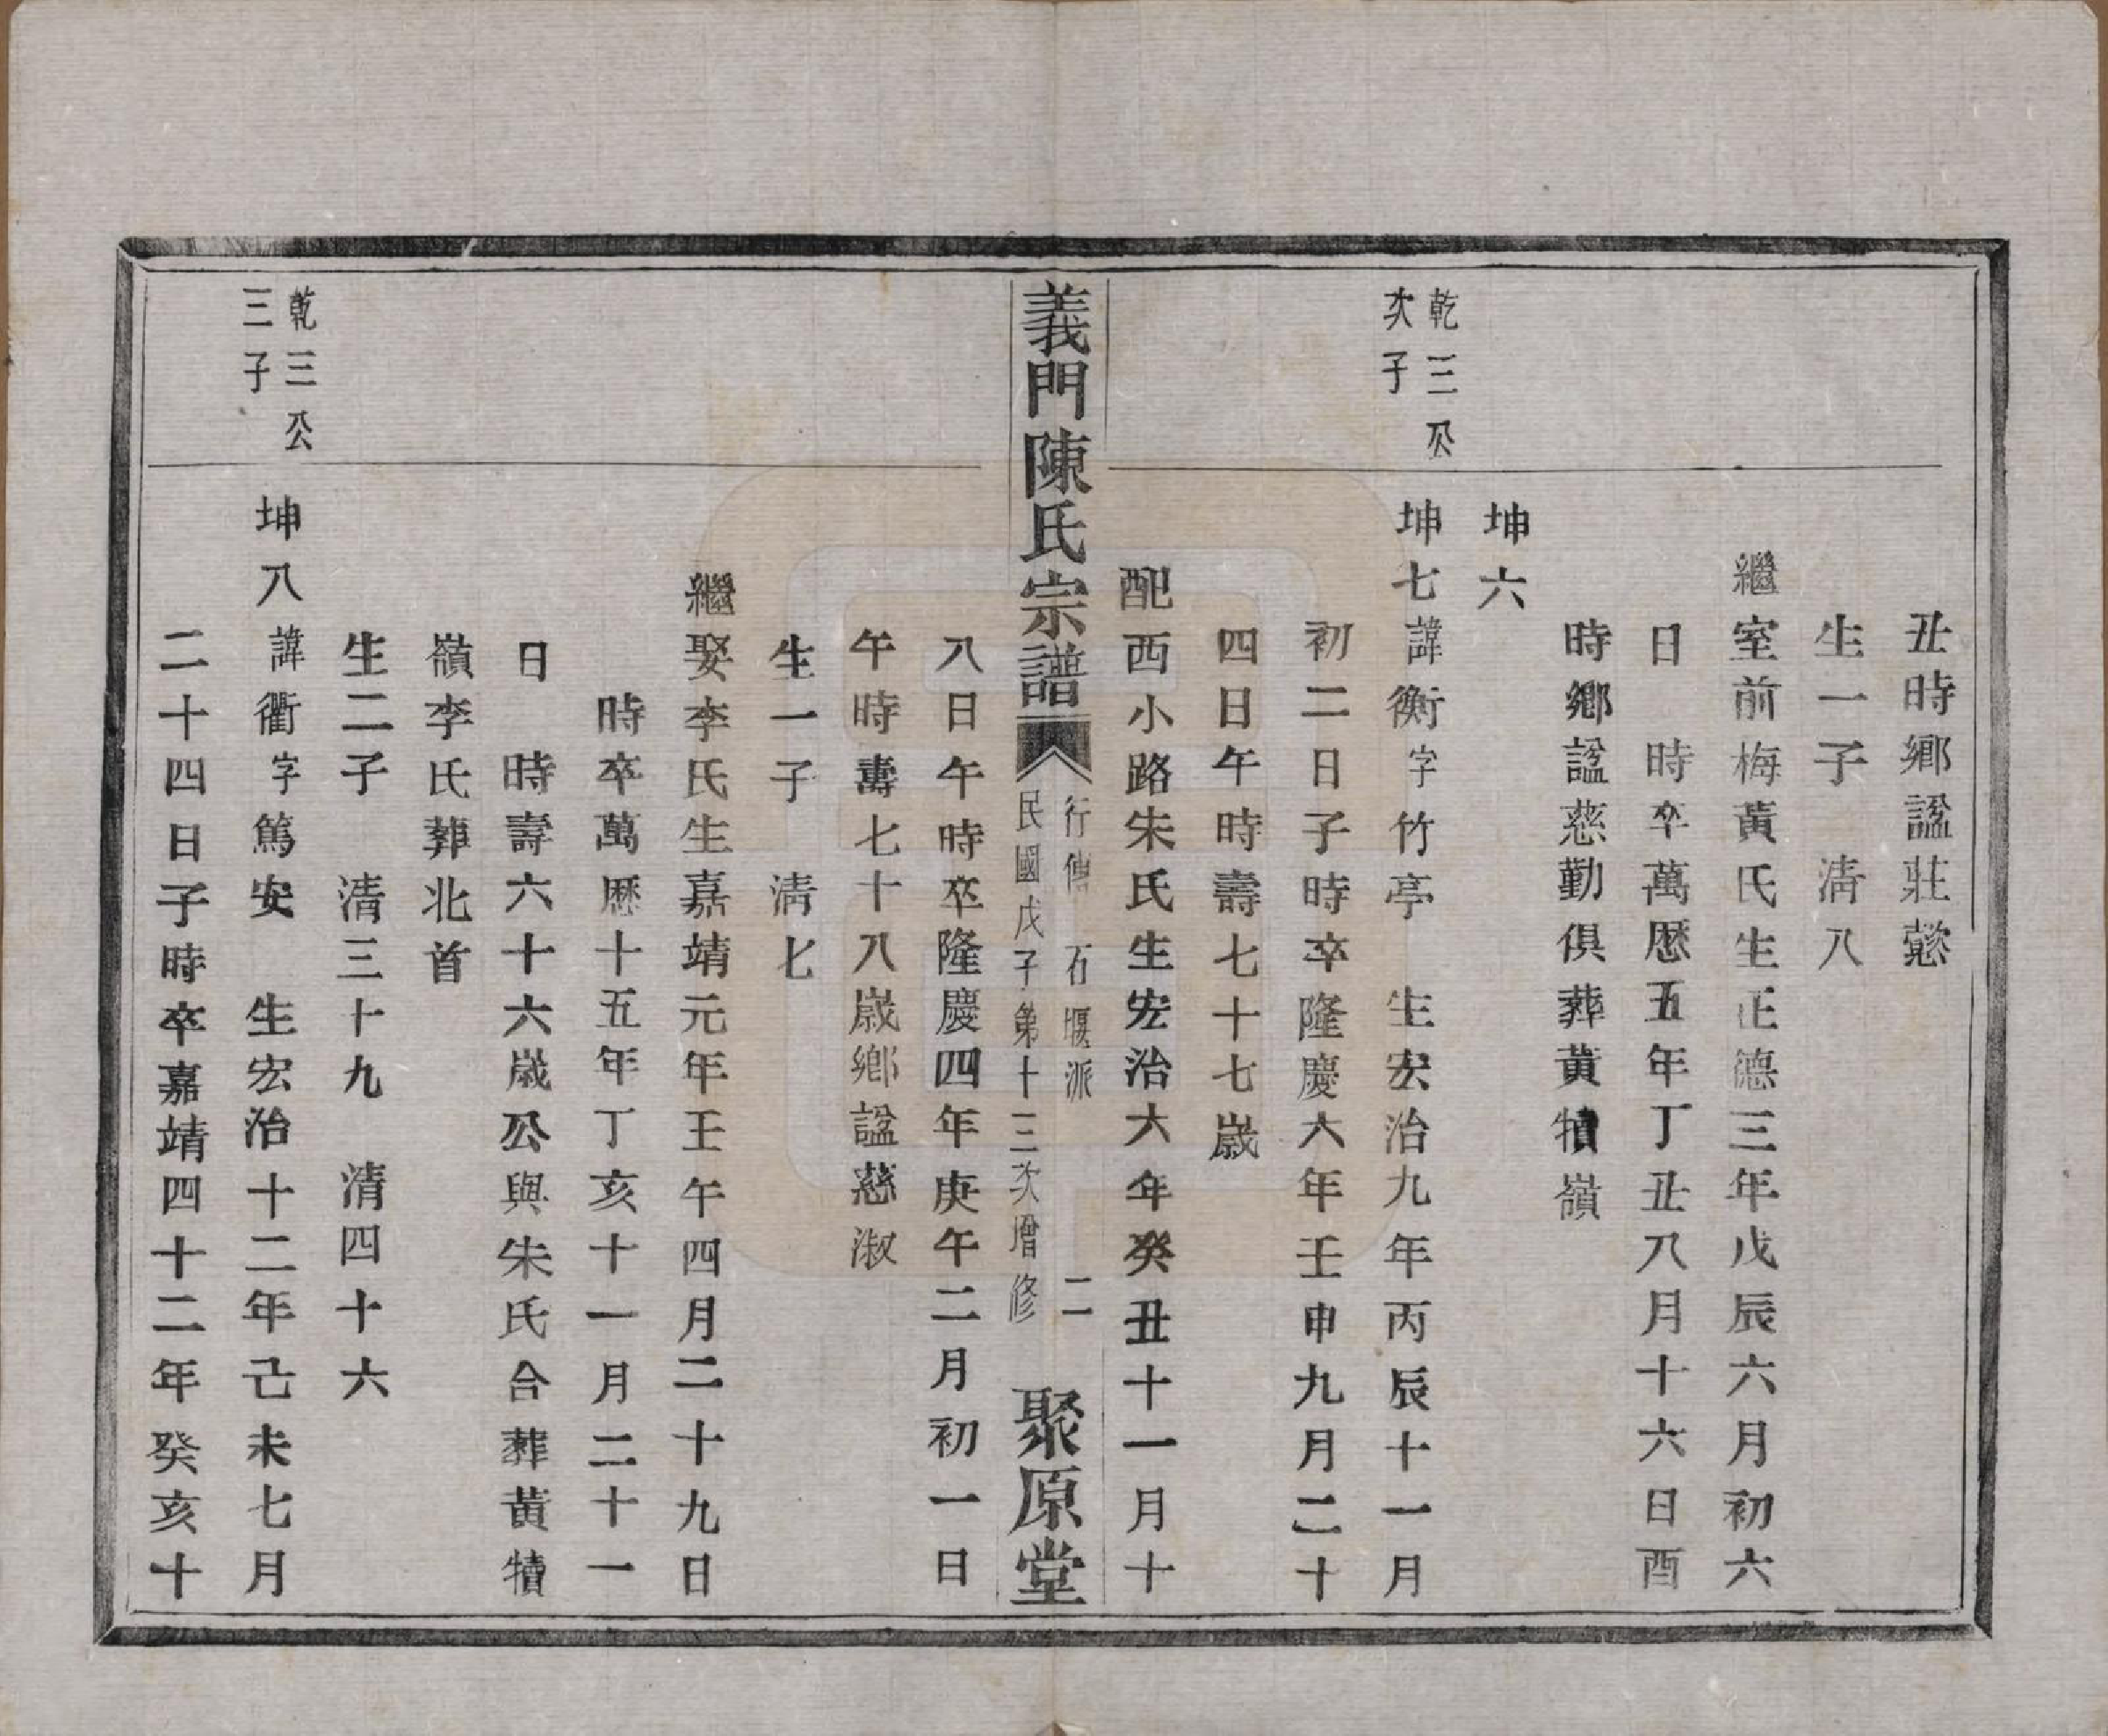 丑時鄉諡莊懿
生一子 淸八
繼室前梅黃氏生正德三年戊辰六月初六
日 時卒萬歷五年丁丑八月十六日酉
時鄉諡慈勤俱葬黃犢嶺
坤六
乾三公
次子
坤七諱衡字竹亭 生宏治九年丙辰十一月
初二日子時卒隆慶六年壬申九月二十
四日午時壽七十七歲
配西小路朱氏生宏治六年癸丑十一月十
義門陳氏宗譜
行傳 石堰派 二
民國戊子第十三次增修
聚原堂
八日午時卒隆慶四年庚午二月初一日
午時壽七十八歲鄉諡慈淑
生一子 淸七
繼娶李氏生嘉靖元年壬午四月二十九日
時卒萬歷十五年丁亥十一月二十一
日 時壽六十六歲公與朱氏合葬黃犢
嶺李氏葬北首
生二子 淸三十九 淸四十六
乾三公
三子
坤八諱衢字篤安 生宏治十二年己未七月
二十四日子時卒嘉靖四十二年癸亥十